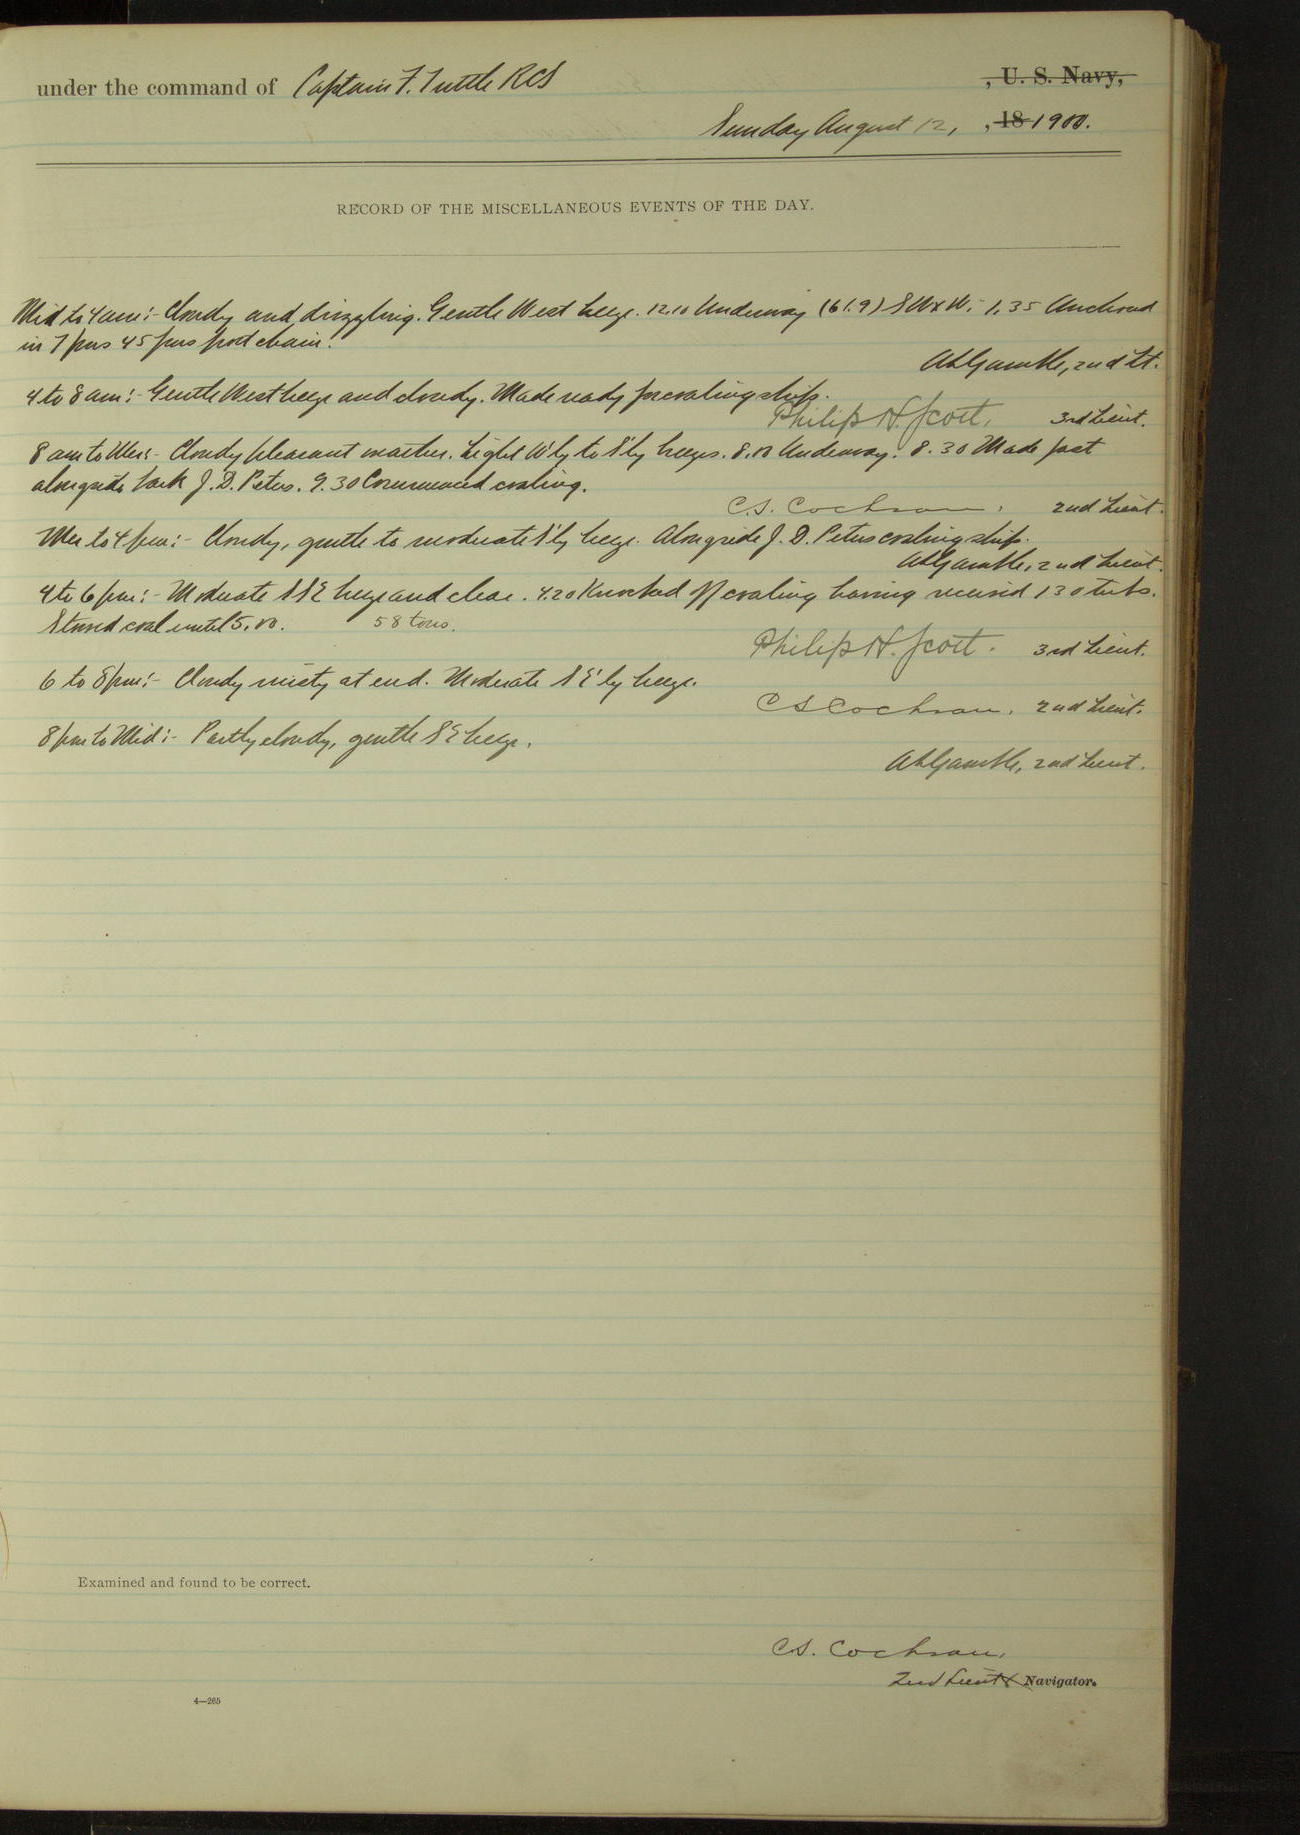 under the command of Captain F. Tuttle RCS , U. S. Navy,
Sunday August 12, , 18 1900.
RECORD OF THE MISCELLANEOUS EVENTS OF THE DAY.
Mid to 4 am:- Cloudy and drizzling. Gentle West breeze. 12.10 Underway (61.9) SWxW. 1.35 Anchored
in 7 fms 45 fms port chain.
2nd Lt.
4 to 8 am:- Gentle West breeze and cloudy. Made ready for coaling ship.
Philip H. Scott, 3rd Lieut.
8 am to Mer:- Cloudy pleasant weather. Light W'ly to S'ly breezes. 8.00 Underway. 8.30 Made fast
alongside bark J. D. Peters. 9.30 Commenced coaling.
C.S. Cochran, 2nd Lieut.
Mer to 4 pm:- Cloudy, gentle to moderate S'ly breeze. Alongside J. D. Peters coaling ship.
Gamble, 2nd Lieut.
4 to 6 pm:- Moderate SSE breeze and clear. 4.20 Knocked off coaling having received 130 tubs.
Stowed coal until 5.00. 58 tons.
Philip H. Scott. 3rd Lieut.
6 to 8 pm:- Cloudy misty at end. Moderate SE'ly breeze.
C S Cochran, 2nd Lieut.
8 pm to Mid:- Partly cloudy, gentle SE breeze.
Gamble, 2nd Lieut.
Examined and found to be correct.
C.S. Cochran,
2nd Lieut & Navigator.
4—265